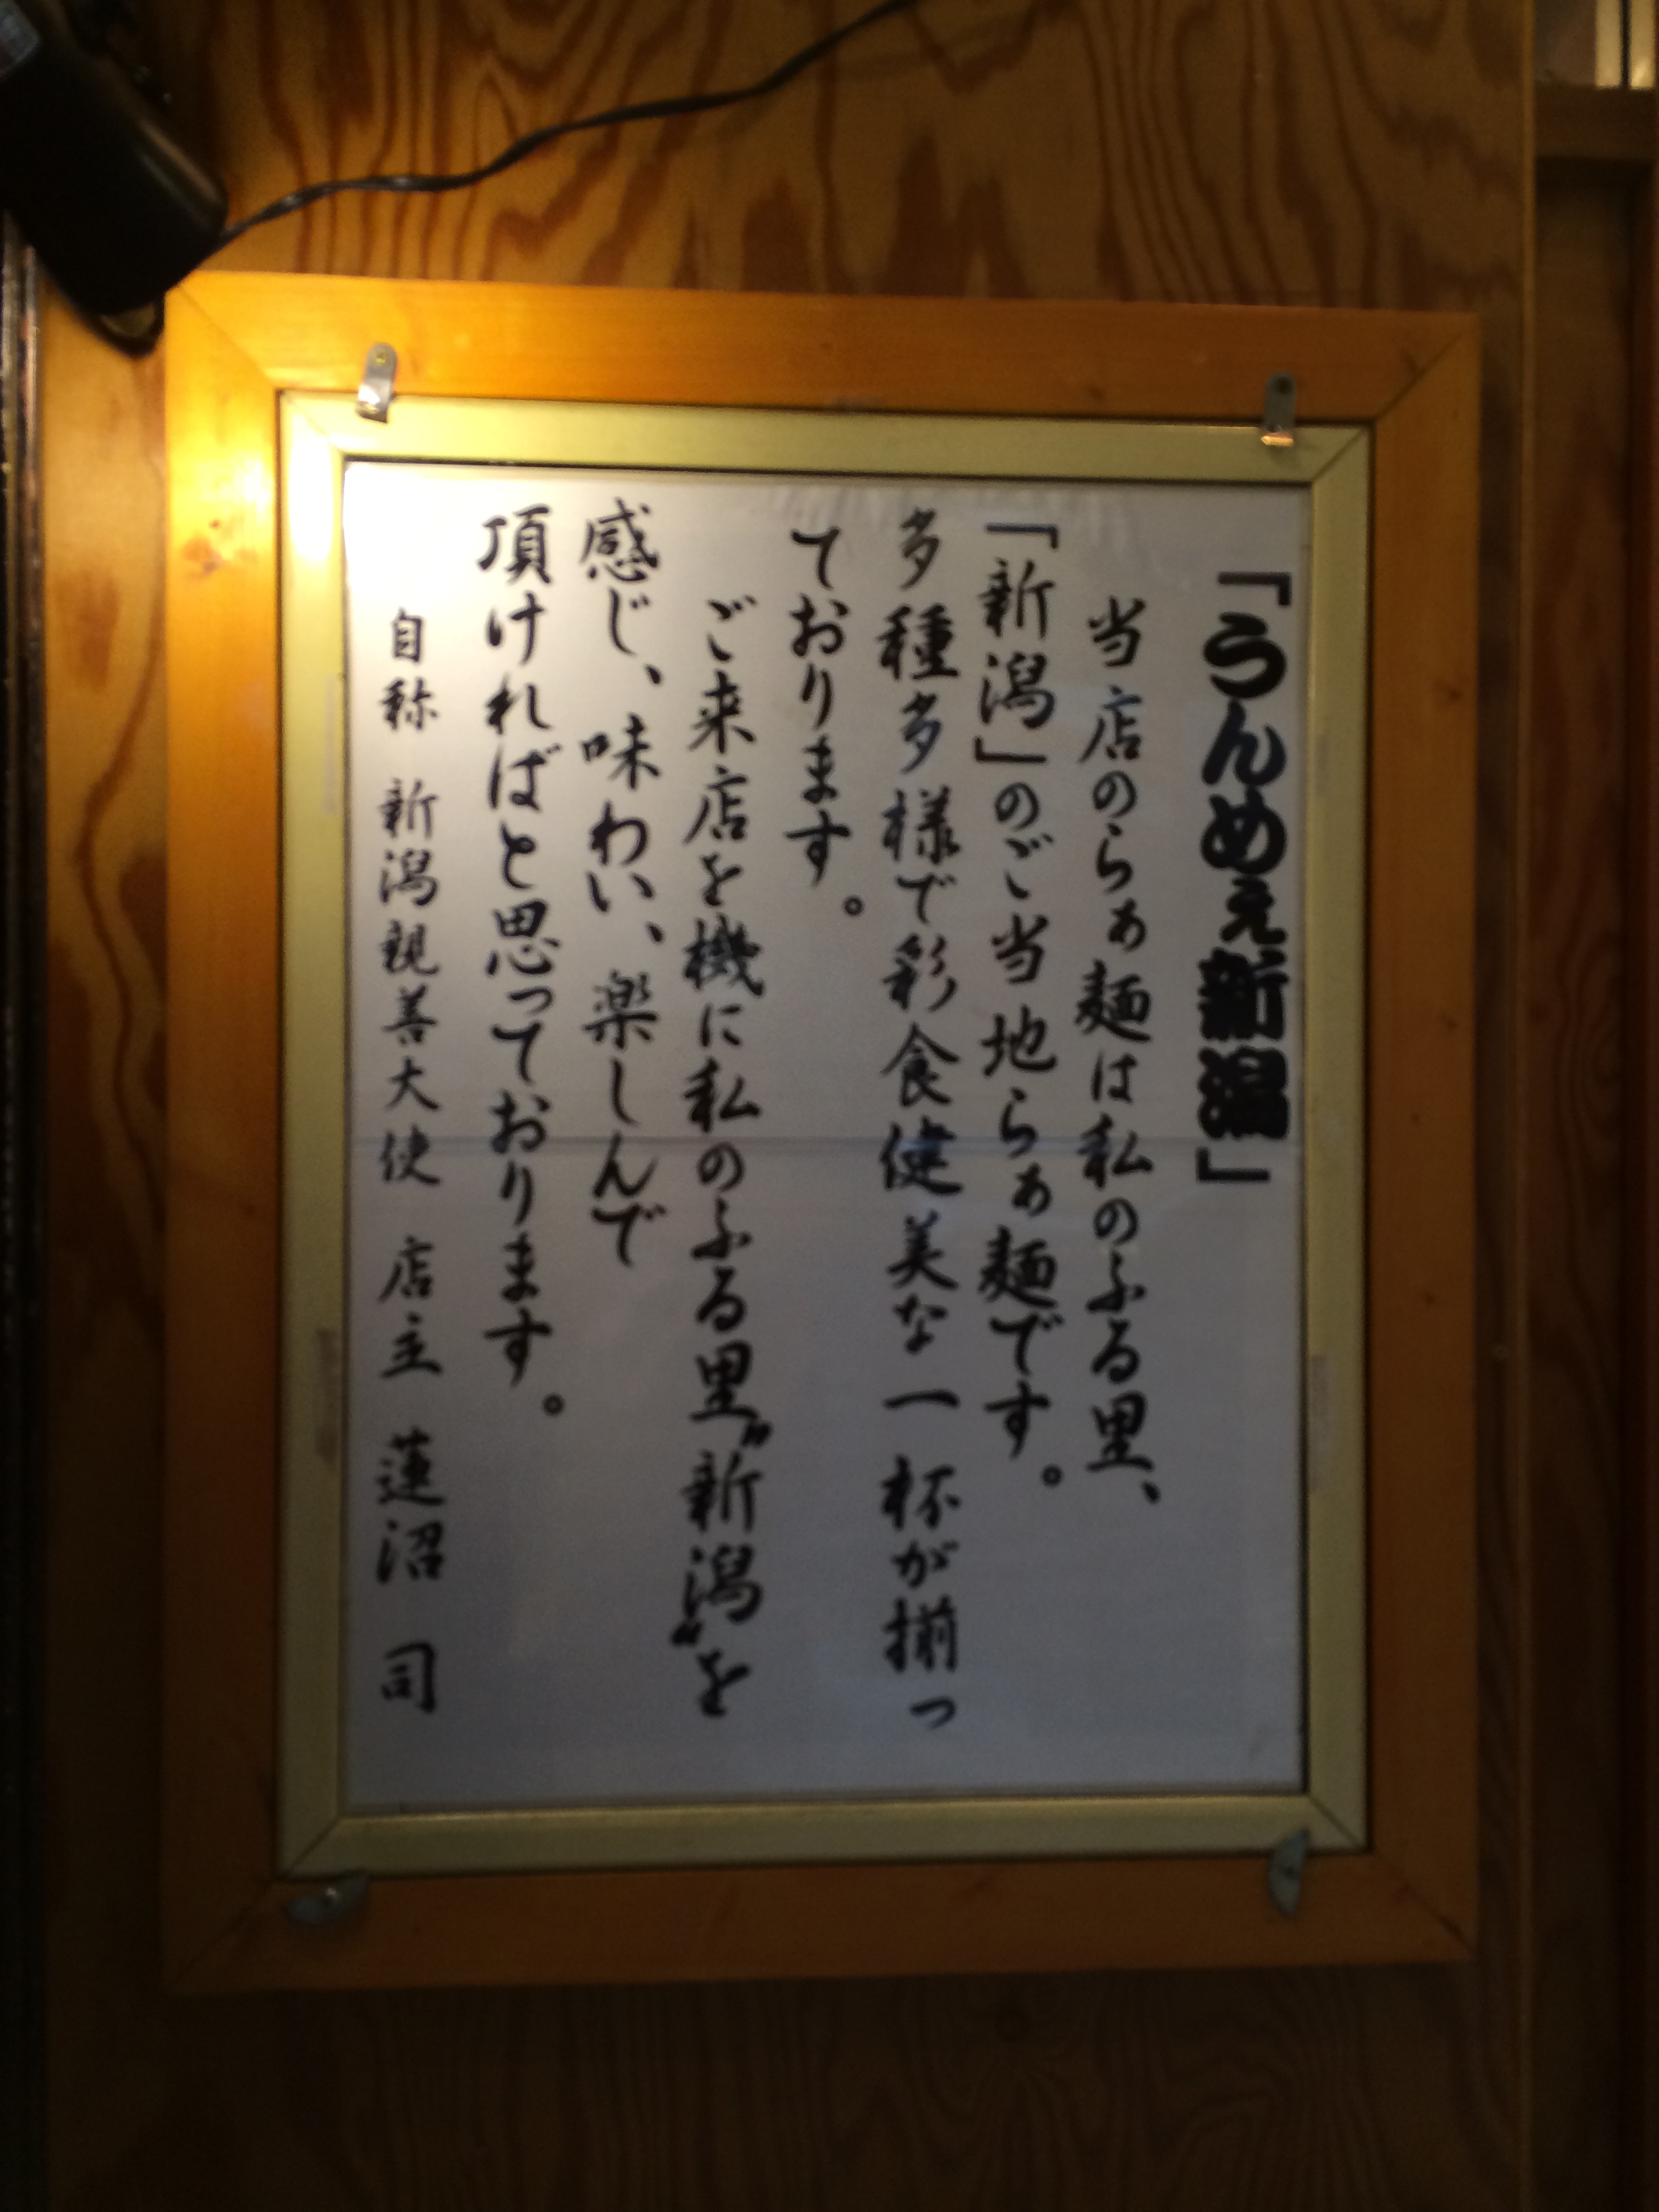 「うんめぇ新潟」
当店のらぁ麺は私のふる里、
「新潟」のご当地らぁ麺です。
多種多様で彩食健美な一杯が揃っ
ております。
ご来店を機に私のふる里〝新潟〟を
感じ、味わい、楽しんで
頂ければと思っております。
自称 新潟親善大使 店主 蓮沼 司